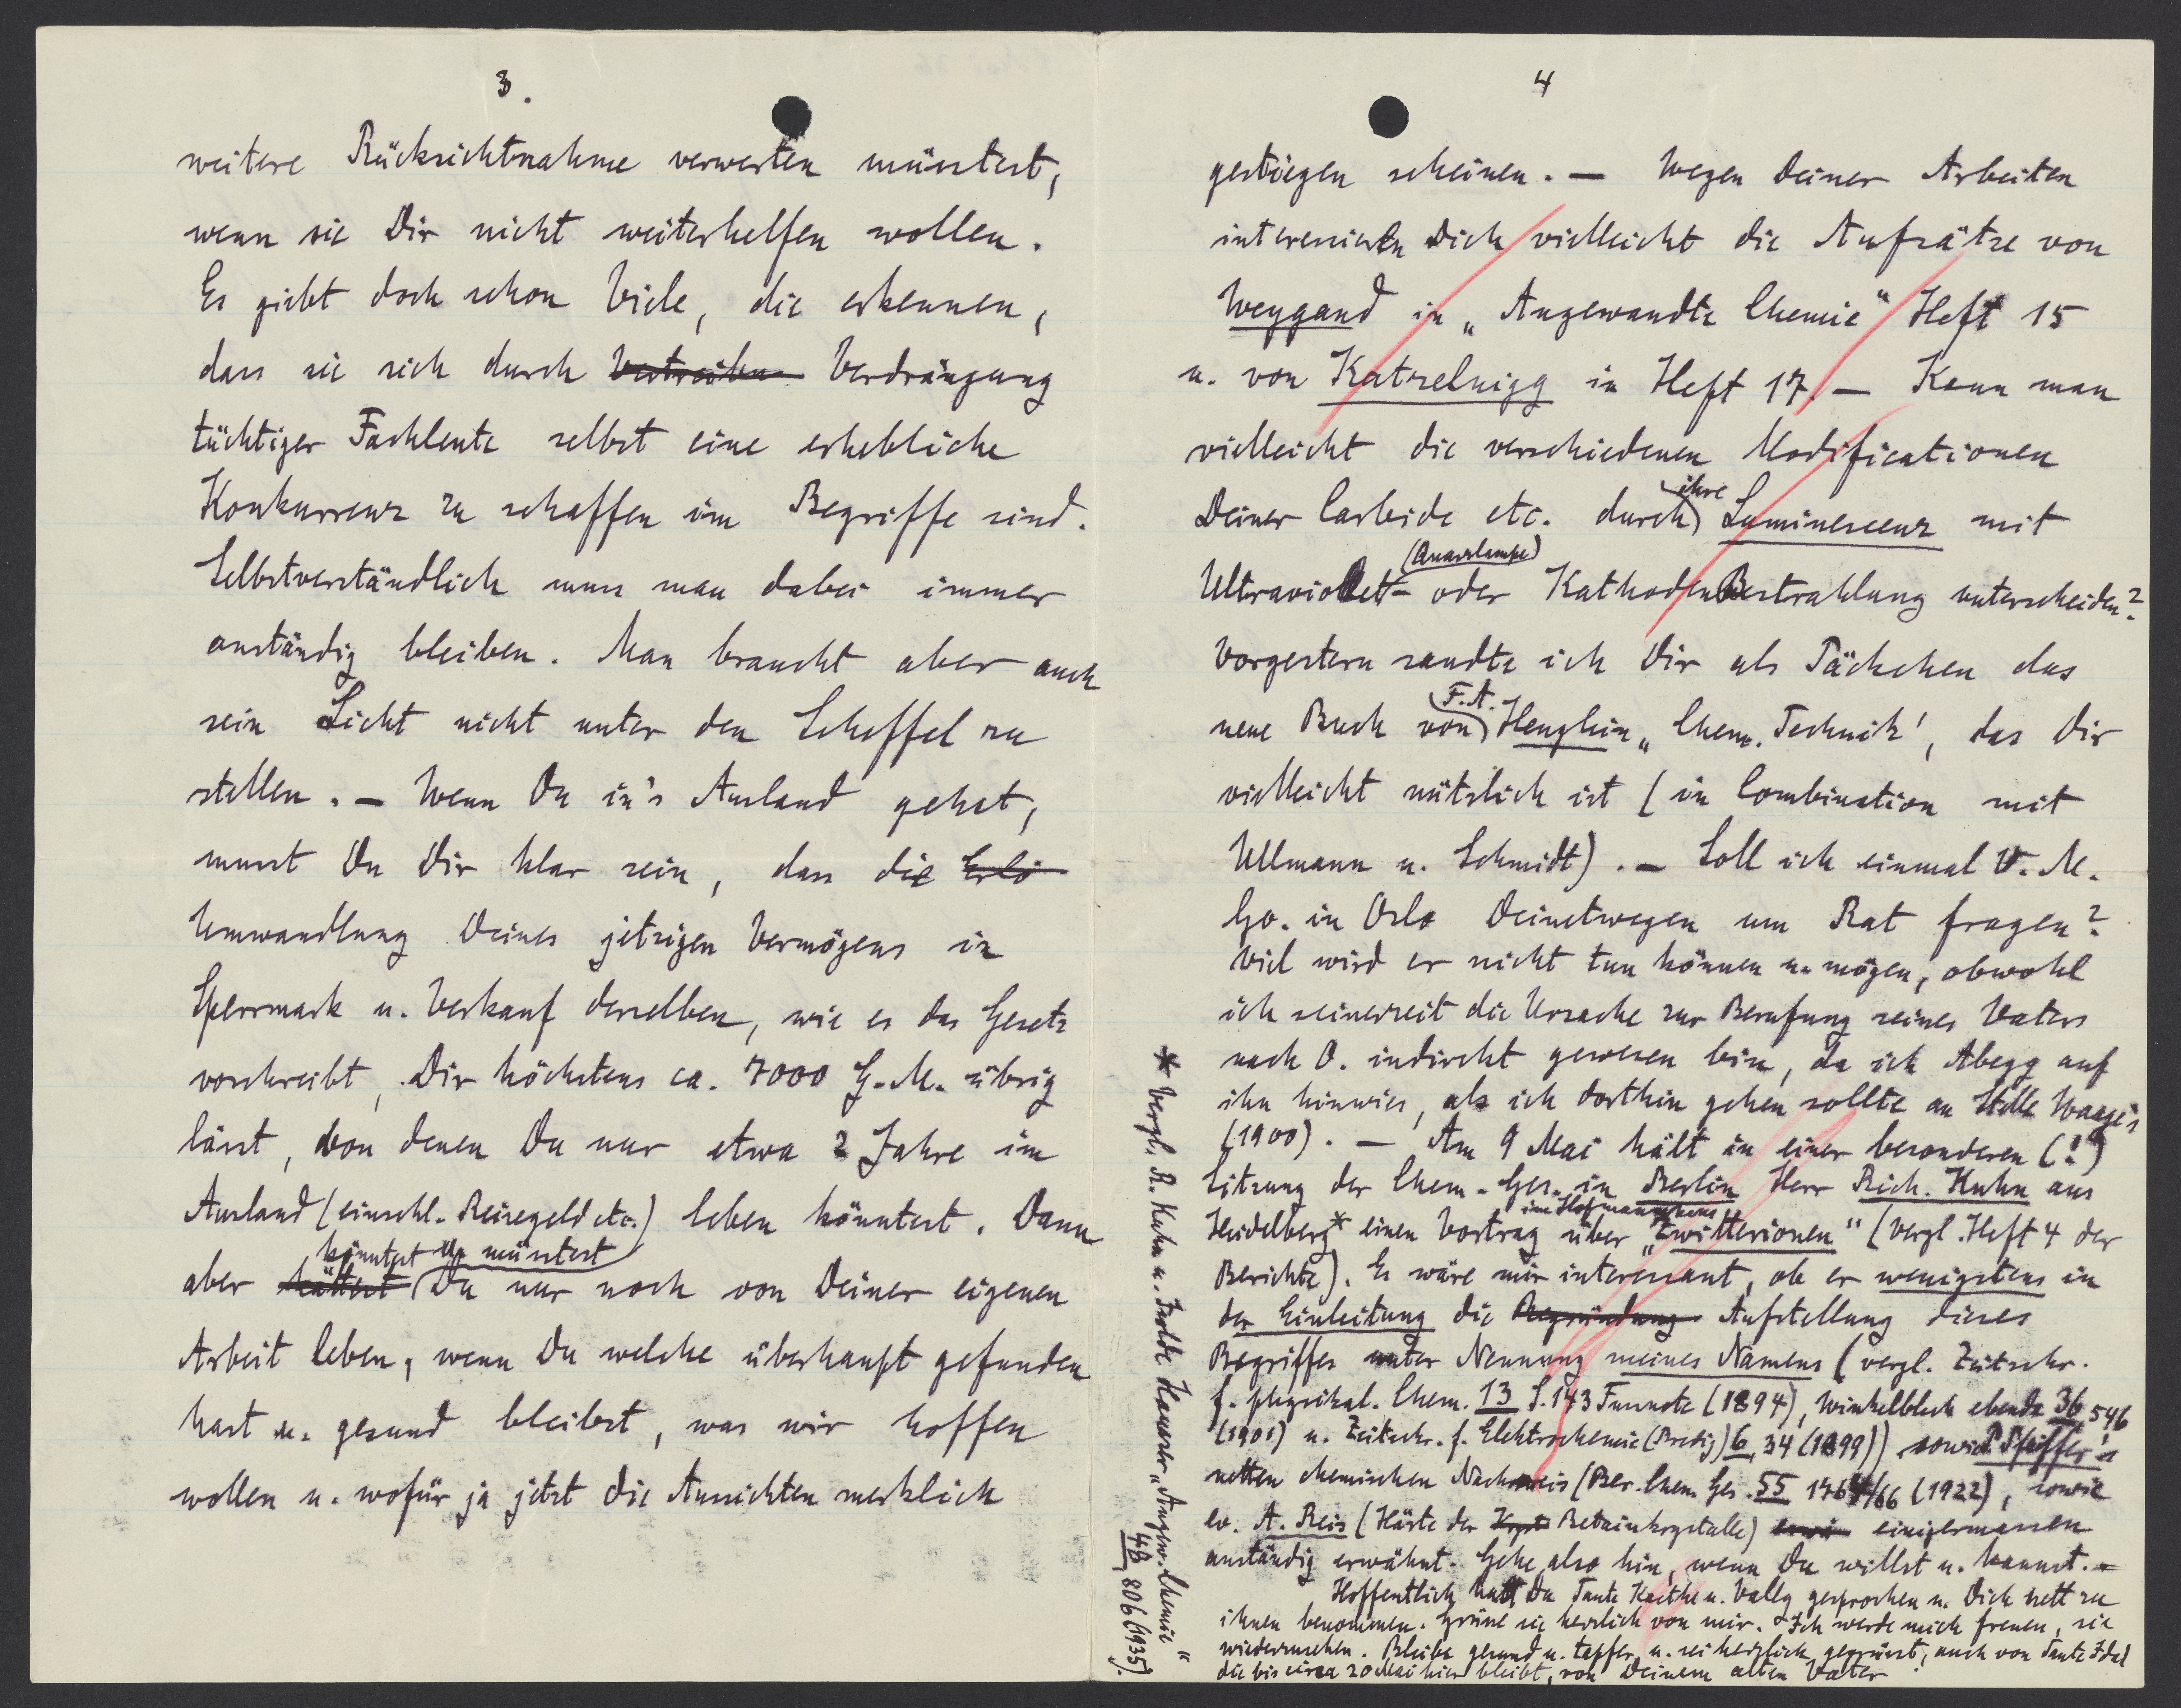 3.
weitere Rücksichtnahme verwerten müsstest,
wenn sie Dir nicht weiterhelfen wollen.
Es giebt doch schon Viele, die erkennen,
dass sie sich durch Vertreiben Verdrängung
tüchtiger Fachleute selbst eine erhebliche
Konkurrenz zu schaffen im Begriffe sind.
Selbstverständlich muss man dabei immer
anständig bleiben. Man braucht aber auch
sein Licht nicht unter den Scheffel zu
stellen. – Wenn Du in's Ausland gehst,
musst Du Dir klar sein, dass die Erlö
Umwandlung Deines jetzigen Vermögens in
Sperrmark u. Verkauf derselben, wie es das Gesetz
vorschreibt, Dir höchstens ca. 7000 G.-M. übrig
lässt, von denen Du nur etwa 2 Jahre im
Ausland (einschl. Reisegeld etc.) leben könntest. Dann
könntest u. müsstest
aber hättest Du nur noch von Deiner eigenen
Arbeit leben, wenn Du welche überhaupt gefunden
hast u. gesund bleibst, was wir hoffen
wollen u. wofür ja jetzt die Aussichten merklich
4
gestiegen scheinen. – Wegen Deiner Arbeiten
interessieren Dich vielleicht die Aufsätze von
Weygand in „Angewandte Chemie" Heft 15
u. von Katzelnigg in Heft 17. – Kann man
vielleicht die verschiedenen Modificationen
ihre
Deiner Carbide etc. durch Luminescenz mit
(Quarzlampe)
Ultraviolett- oder Kathoden Bestrahlung unterscheiden?
Vorgestern sandte ich Dir als Päckchen das
F. A.
neue Buch von Henglein „Chem. Technik', das Dir
vielleicht nützlich ist (in Combination mit
Ullmann u. Schmidt). – Soll ich einmal V. M.
Go. in Oslo Deinetwegen um Rat fragen?
Viel wird er nicht tun können u. mögen, obwohl
ich seinerzeit die Ursache zur Berufung seines Vaters
nach O. indirekt gewesen bin, da ich Abegg auf
ihn hinwies, als ich dorthin gehen sollte an Stelle Waage's
(1900). – Am 9 Mai hält in einer besonderen (!?)
Sitzung der Chem. Ges. in Berlin Herr Rich. Kuhn aus
im Hofmannhaus
Heidelberg* einen Vortrag über „Zwitterionen" (vergl. Heft 4 der
Berichte). Es wäre mir interessant, ob er wenigstens in
der Einleitung die Begründung Aufstellung dieses
Begriffes unter Nennung meines Namens (vergl. Zeitschr.
f. physikal. Chem. 13 S. 143 Fussnote (1894), Winkelblech ebenda 36, 546
(1901) u. Zeitschr. f. Elektrochemie (Bredig) 6, 34 (1899)) sowie P. Pfeiffer's
netten chemischen Nachweis (Ber. Chem. Ges. 55 1764/66 (1922), sowie
ev. A. Reis (Härte der Kryst Betainkrystalle) erwä einigermassen
anständig erwähnt. Gehe also hin, wenn Du willst u. kannst. –
Hoffentlich hast Du Tante Kaethe u. Vally gesprochen u. Dich nett zu
ihnen benommen. Grüsse sie herzlich von mir. Ich werde mich freuen, sie
wiederzusehen. Bleibe gesund u. tapfer u. sei herzlich gegrüsst, auch von Tante Idel
die bis circa 20 Mai hier bleibt, von Deinem alten Vater
* Vergl. R. Kuhn u. Isolde Hausser „Angew. Chemie"
48, 806 (1935).